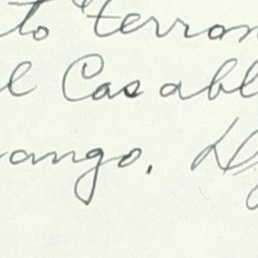 to terron
l Casabl
ango. D